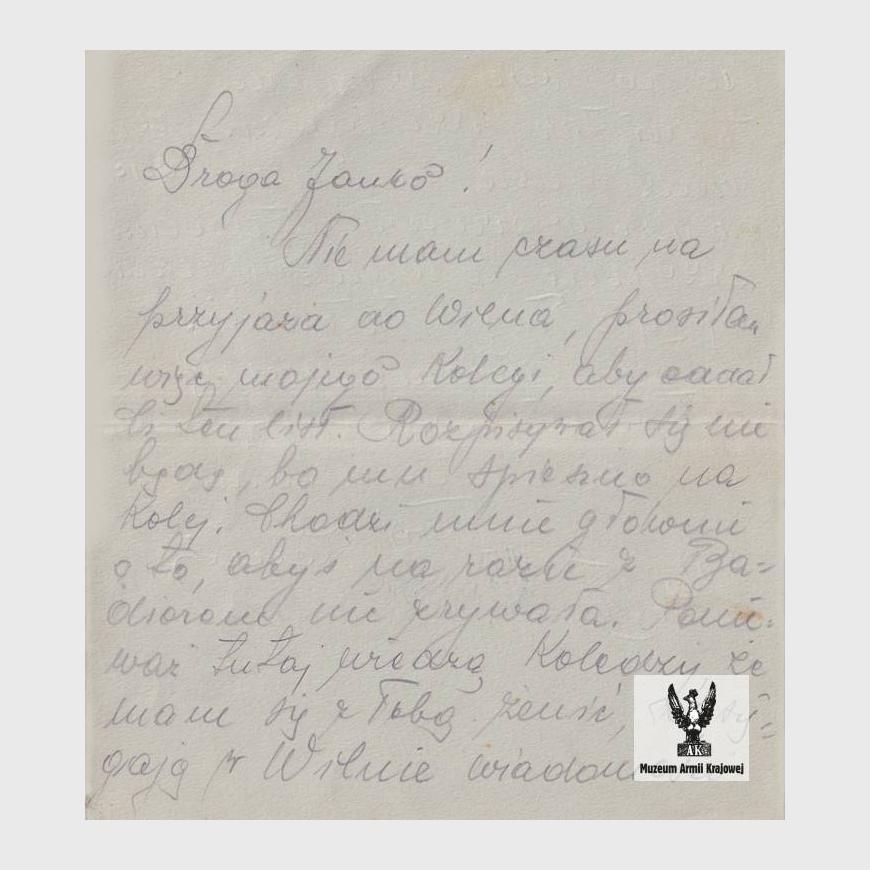 Droga Janko!
Nie mam czasu na
przyjazd do Wilna, prosiłam
więc mojego Kolegi, aby oddał
Ci ten list. Rozpisywał się nie
będę, bo mu spieszno na
Kolej. Chodzi mnie głównie
o to, abyś na razie z
nie zrywała. Ponie-
waż tutaj wiedzą Koledzy że
mam się z Tobą żenić,
gają w Wilnie
AK
Muzeum Armii Krajowej